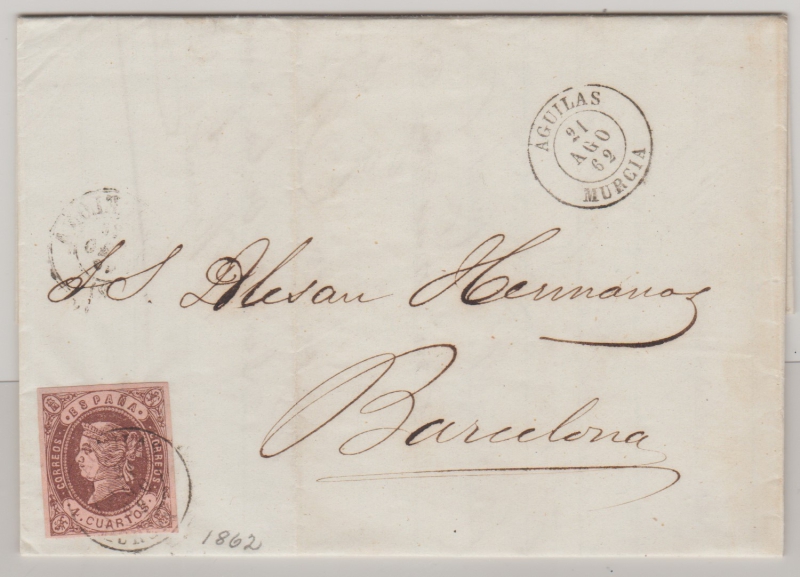 AGUILAS
21
AGO
62
MURCIA
S S Alesan Hermanos
Barcelona
ESPAÑA
CORREOS
CORREOS
4 CUARTOS
1862